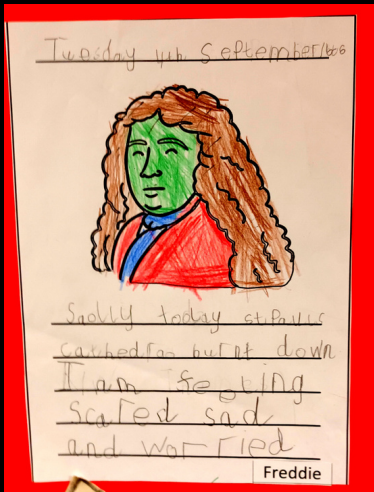 Tuesday 4th September 1666
Sadlly today st Palls
cathedral burnt down
I am feeling
scared sad
and worried
Freddie